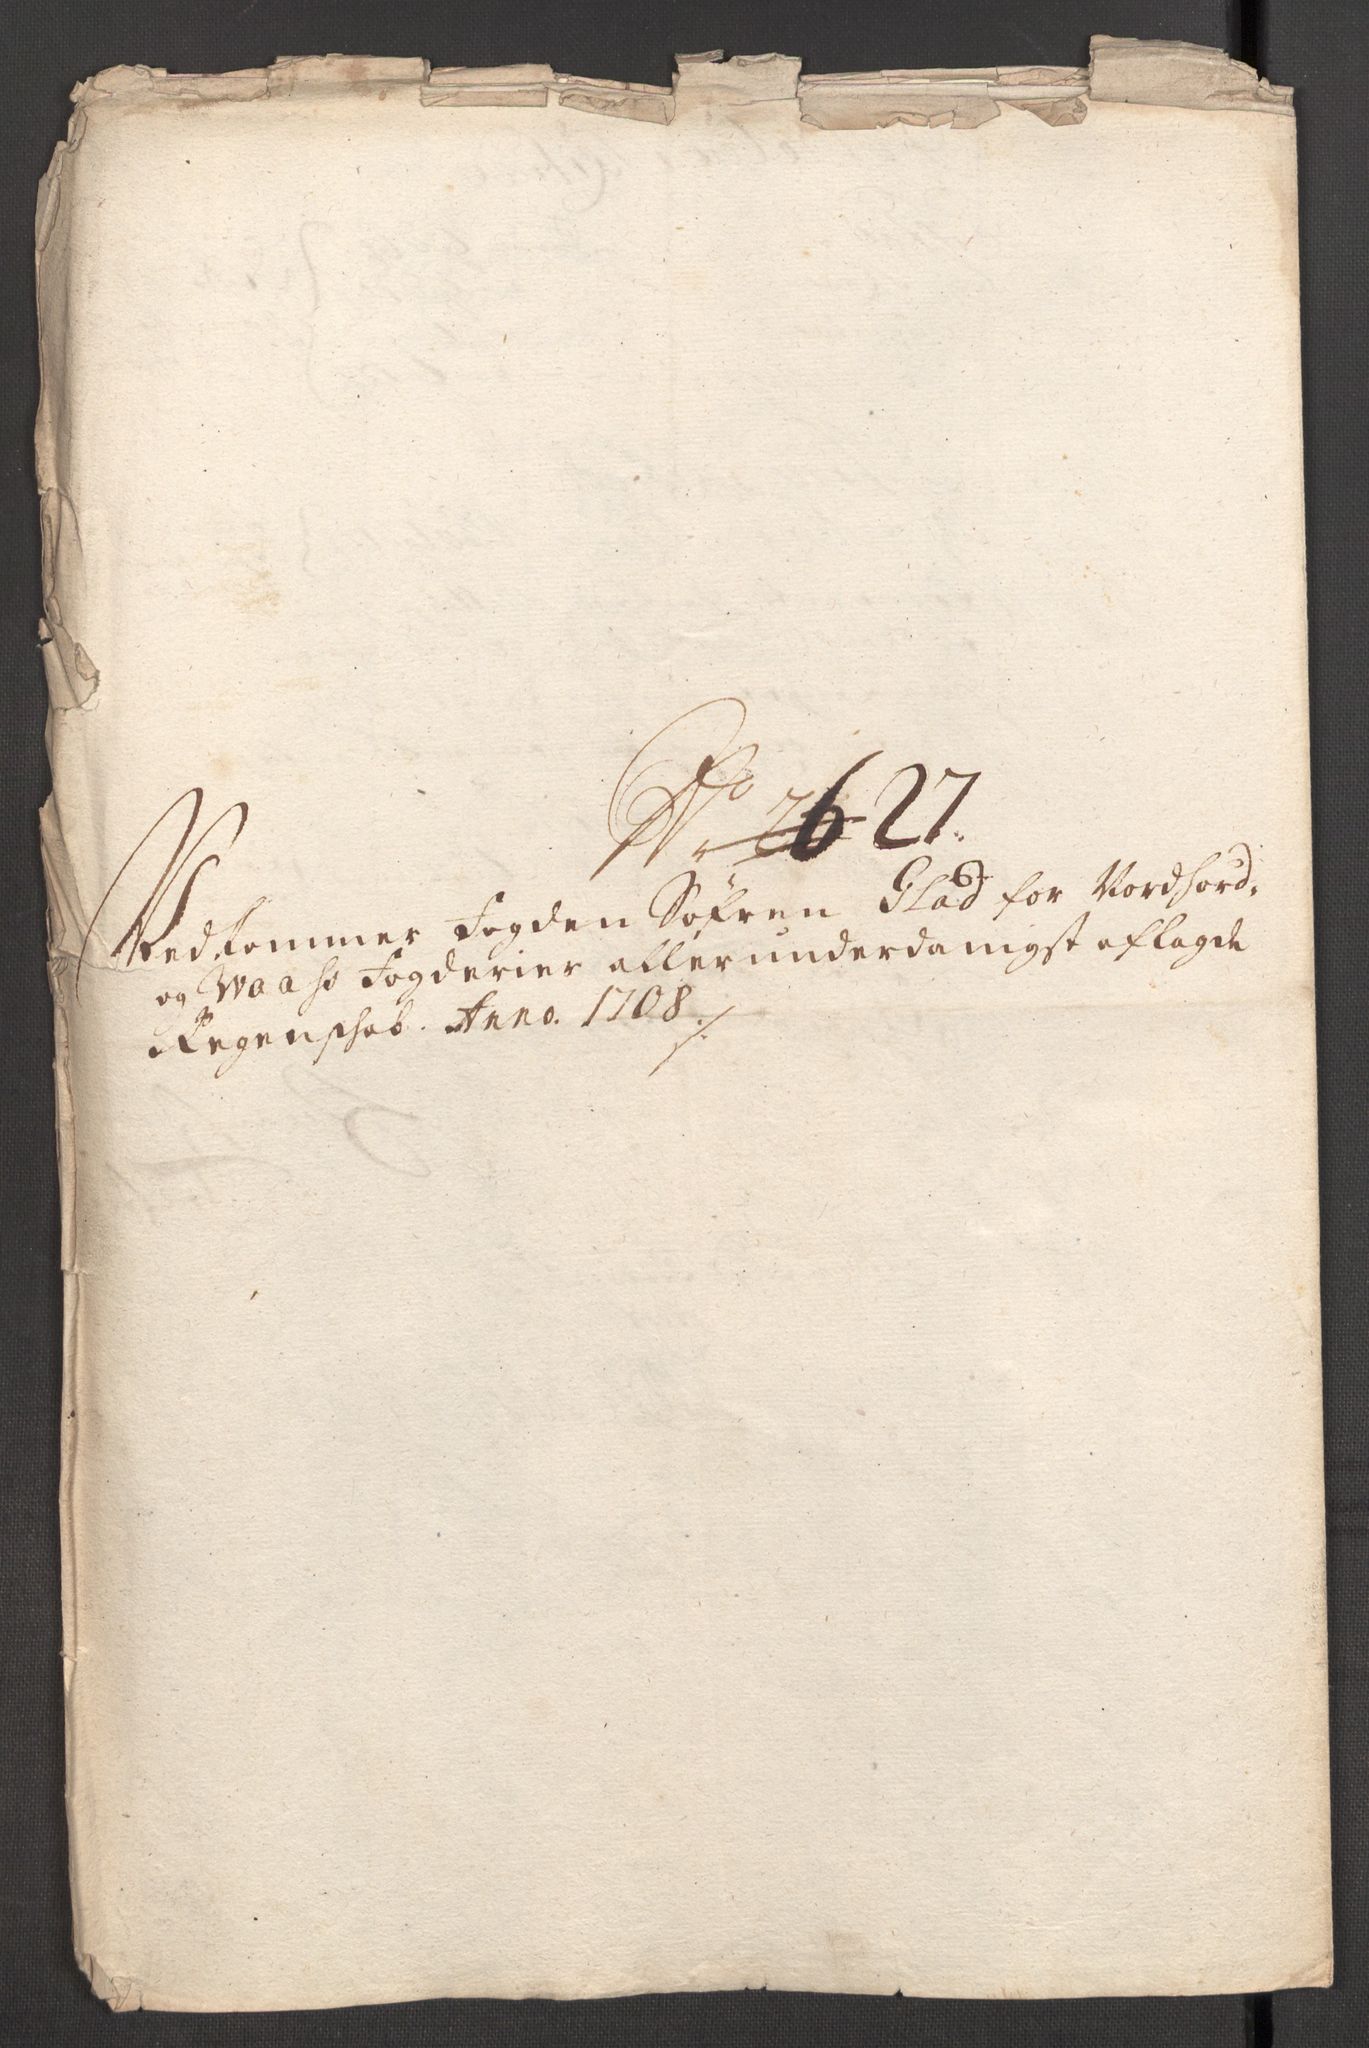 No 26 27.
Vedkommer Fogden Søfren Glad for Nordhord.
og Waass Fogderier allerunderdanigst aflagde
Regenschab. Anno. 1708 ./.